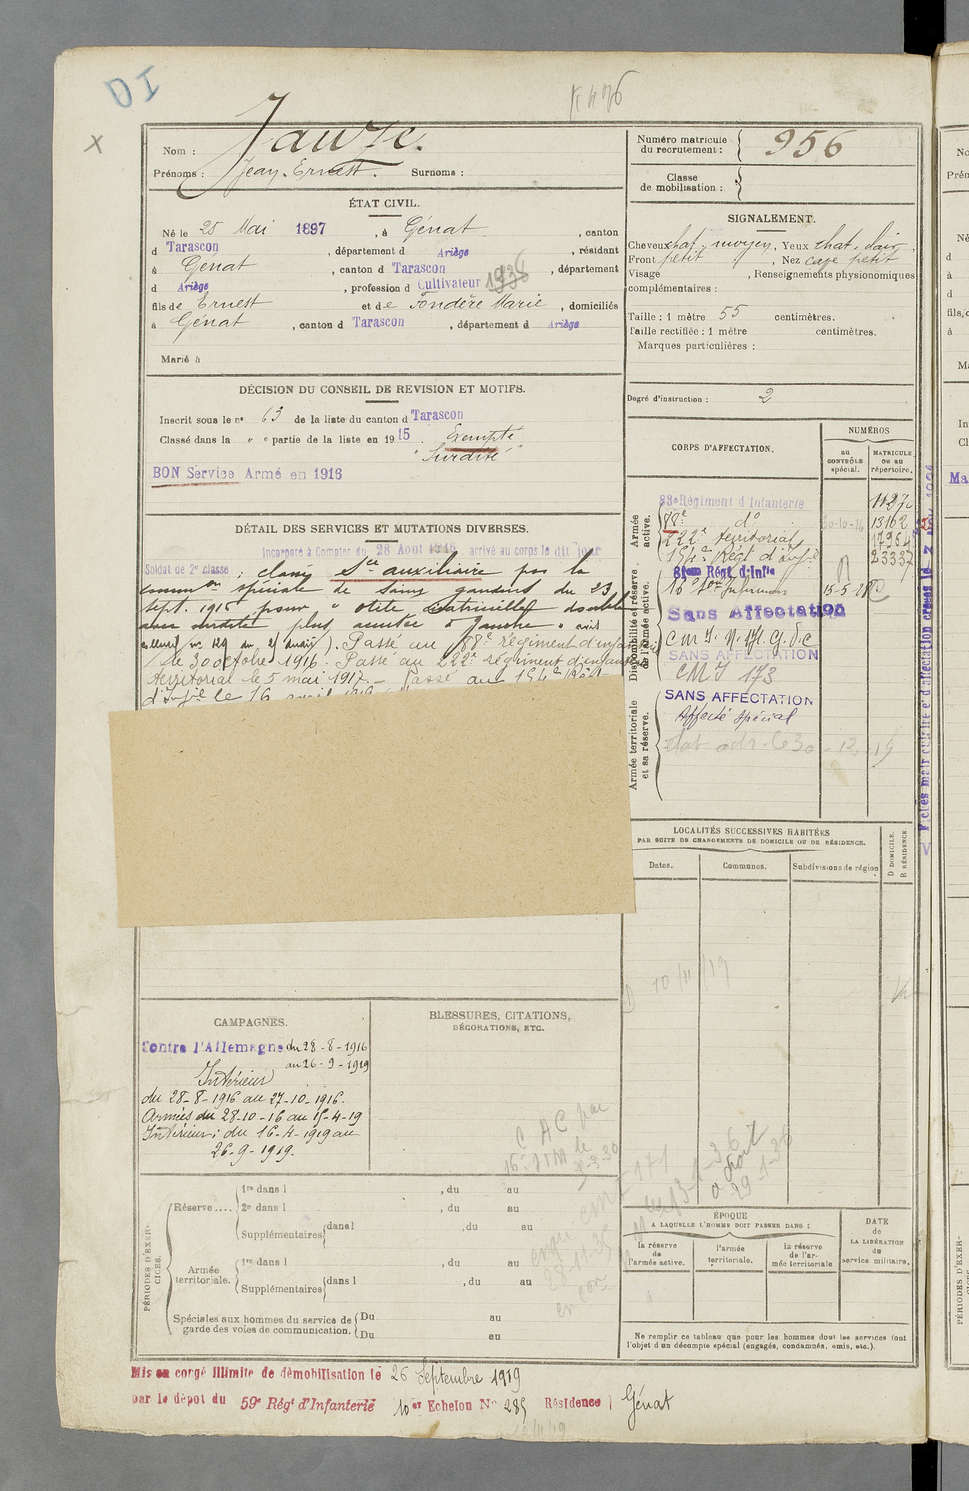 DI
K 476
x
Nom : Jauze.
Prénoms : Jean-Ernest. Surnoms :
Numéro matricule du recrutement : 956
Classe de mobilisation :
ÉTAT CIVIL.
Né le 25 Mai 1897, à Génat, canton
d Tarascon, département d Ariège, résidant
à Génat, canton d Tarascon, département
d Ariège, profession d Cultivateur 1936
fils de Ernest et de Fondère Marie, domiciliés
à Génat, canton d Tarascon, département d Ariège
Marié à
SIGNALEMENT.
Cheveux chat. moyen, Yeux chat. clair
Front petit, Nez cave petit
Visage , Renseignements physionomiques
complémentaires :
Taille : 1 mètre 55 centimètres.
Taille rectifiée : 1 mètre centimètres.
Marques particulières :
Degré d'instruction : 2
DÉCISION DU CONSEIL DE REVISION ET MOTIFS.
Inscrit sous le n° 63 de la liste du canton d Tarascon
Classé dans la " e partie de la liste en 1915. Exempté
"Surdité"
BON Service Armé en 1916
DÉTAIL DES SERVICES ET MUTATIONS DIVERSES.
Incorporé à Compter du 28 Aout 1916, arrivé au corps le dit jour
Soldat de 2e classe ; classé Sce auxiliaire par la
common spéciale de Saint gaudens du 23
sept. 1916 pour " otite double
avec surdité plus accusée à gauche " avis
). Passé au 88e Régiment d'infanterie
le 30 octobre 1916. Passé au 222e régiment d'infanterie
territorial le 5 mai 1917. - Passé au 154e Rég-
d'Infie le 16 avril 1919
CORPS D'AFFECTATION.
NUMÉROS
au CONTRÔLE spécial.
MATRICULE ou au répertoire.
Armée active.
83e Régiment d'Infanterie 11270
88e do 30-10-16 13162
222e territorial 17954
154e Régt d'Infie 23337
Disponibilité et réserve de l'armée active.
81eme Régt d'Infie
16e Son Infirmiers 15-5-28
Sans Affectation
SANS AFFECTATION
CMI 173
Armée territoriale et sa réserve.
SANS AFFECTATION
Affecté spécial
30-12-19
LOCALITÉS SUCCESSIVES HABITÉES
PAR SUITE DE CHANGEMENTS DE DOMICILE OU DE RÉSIDENCE.
Dates.
Communes.
Subdivisions de région
D DOMICILE.
R RÉSIDENCE.
10/11/19
CAMPAGNES.
Contre l'Allemagne du 28-8-1916
au 26-9-1919
Intérieur
du 28-8-1916 au 27-10-1916.
Armées du 28-10-16 au 15-4-19
Intérieur ; du 16-4-1919 au
26-9-1919.
BLESSURES, CITATIONS,
DÉCORATIONS, ETC.
PÉRIODES D'EXERCICES.
Réserve....
1re dans l , du au
2e dans l , du au
Supplémentaires dans l , du au
Armée territoriale.
1re dans l , du au
Supplémentaires dans l , du au
Spéciales aux hommes du service de garde des voies de communication.
Du au
Du au
ÉPOQUE
A LAQUELLE L'HOMME DOIT PASSER DANS :
la réserve de l'armée active.
l'armée territoriale.
la réserve de l'armée territoriale
DATE de LA LIBÉRATION du service militaire.
Ne remplir ce tableau que pour les hommes dont les services font
l'objet d'un décompte spécial (engagés, condamnés, omis, etc.).
Mis en congé illimité de démobilisation le 26 Septembre 1919
par le dépôt du 59e Régt d'Infanterie 10er Echelon No 285 Résidence Génat